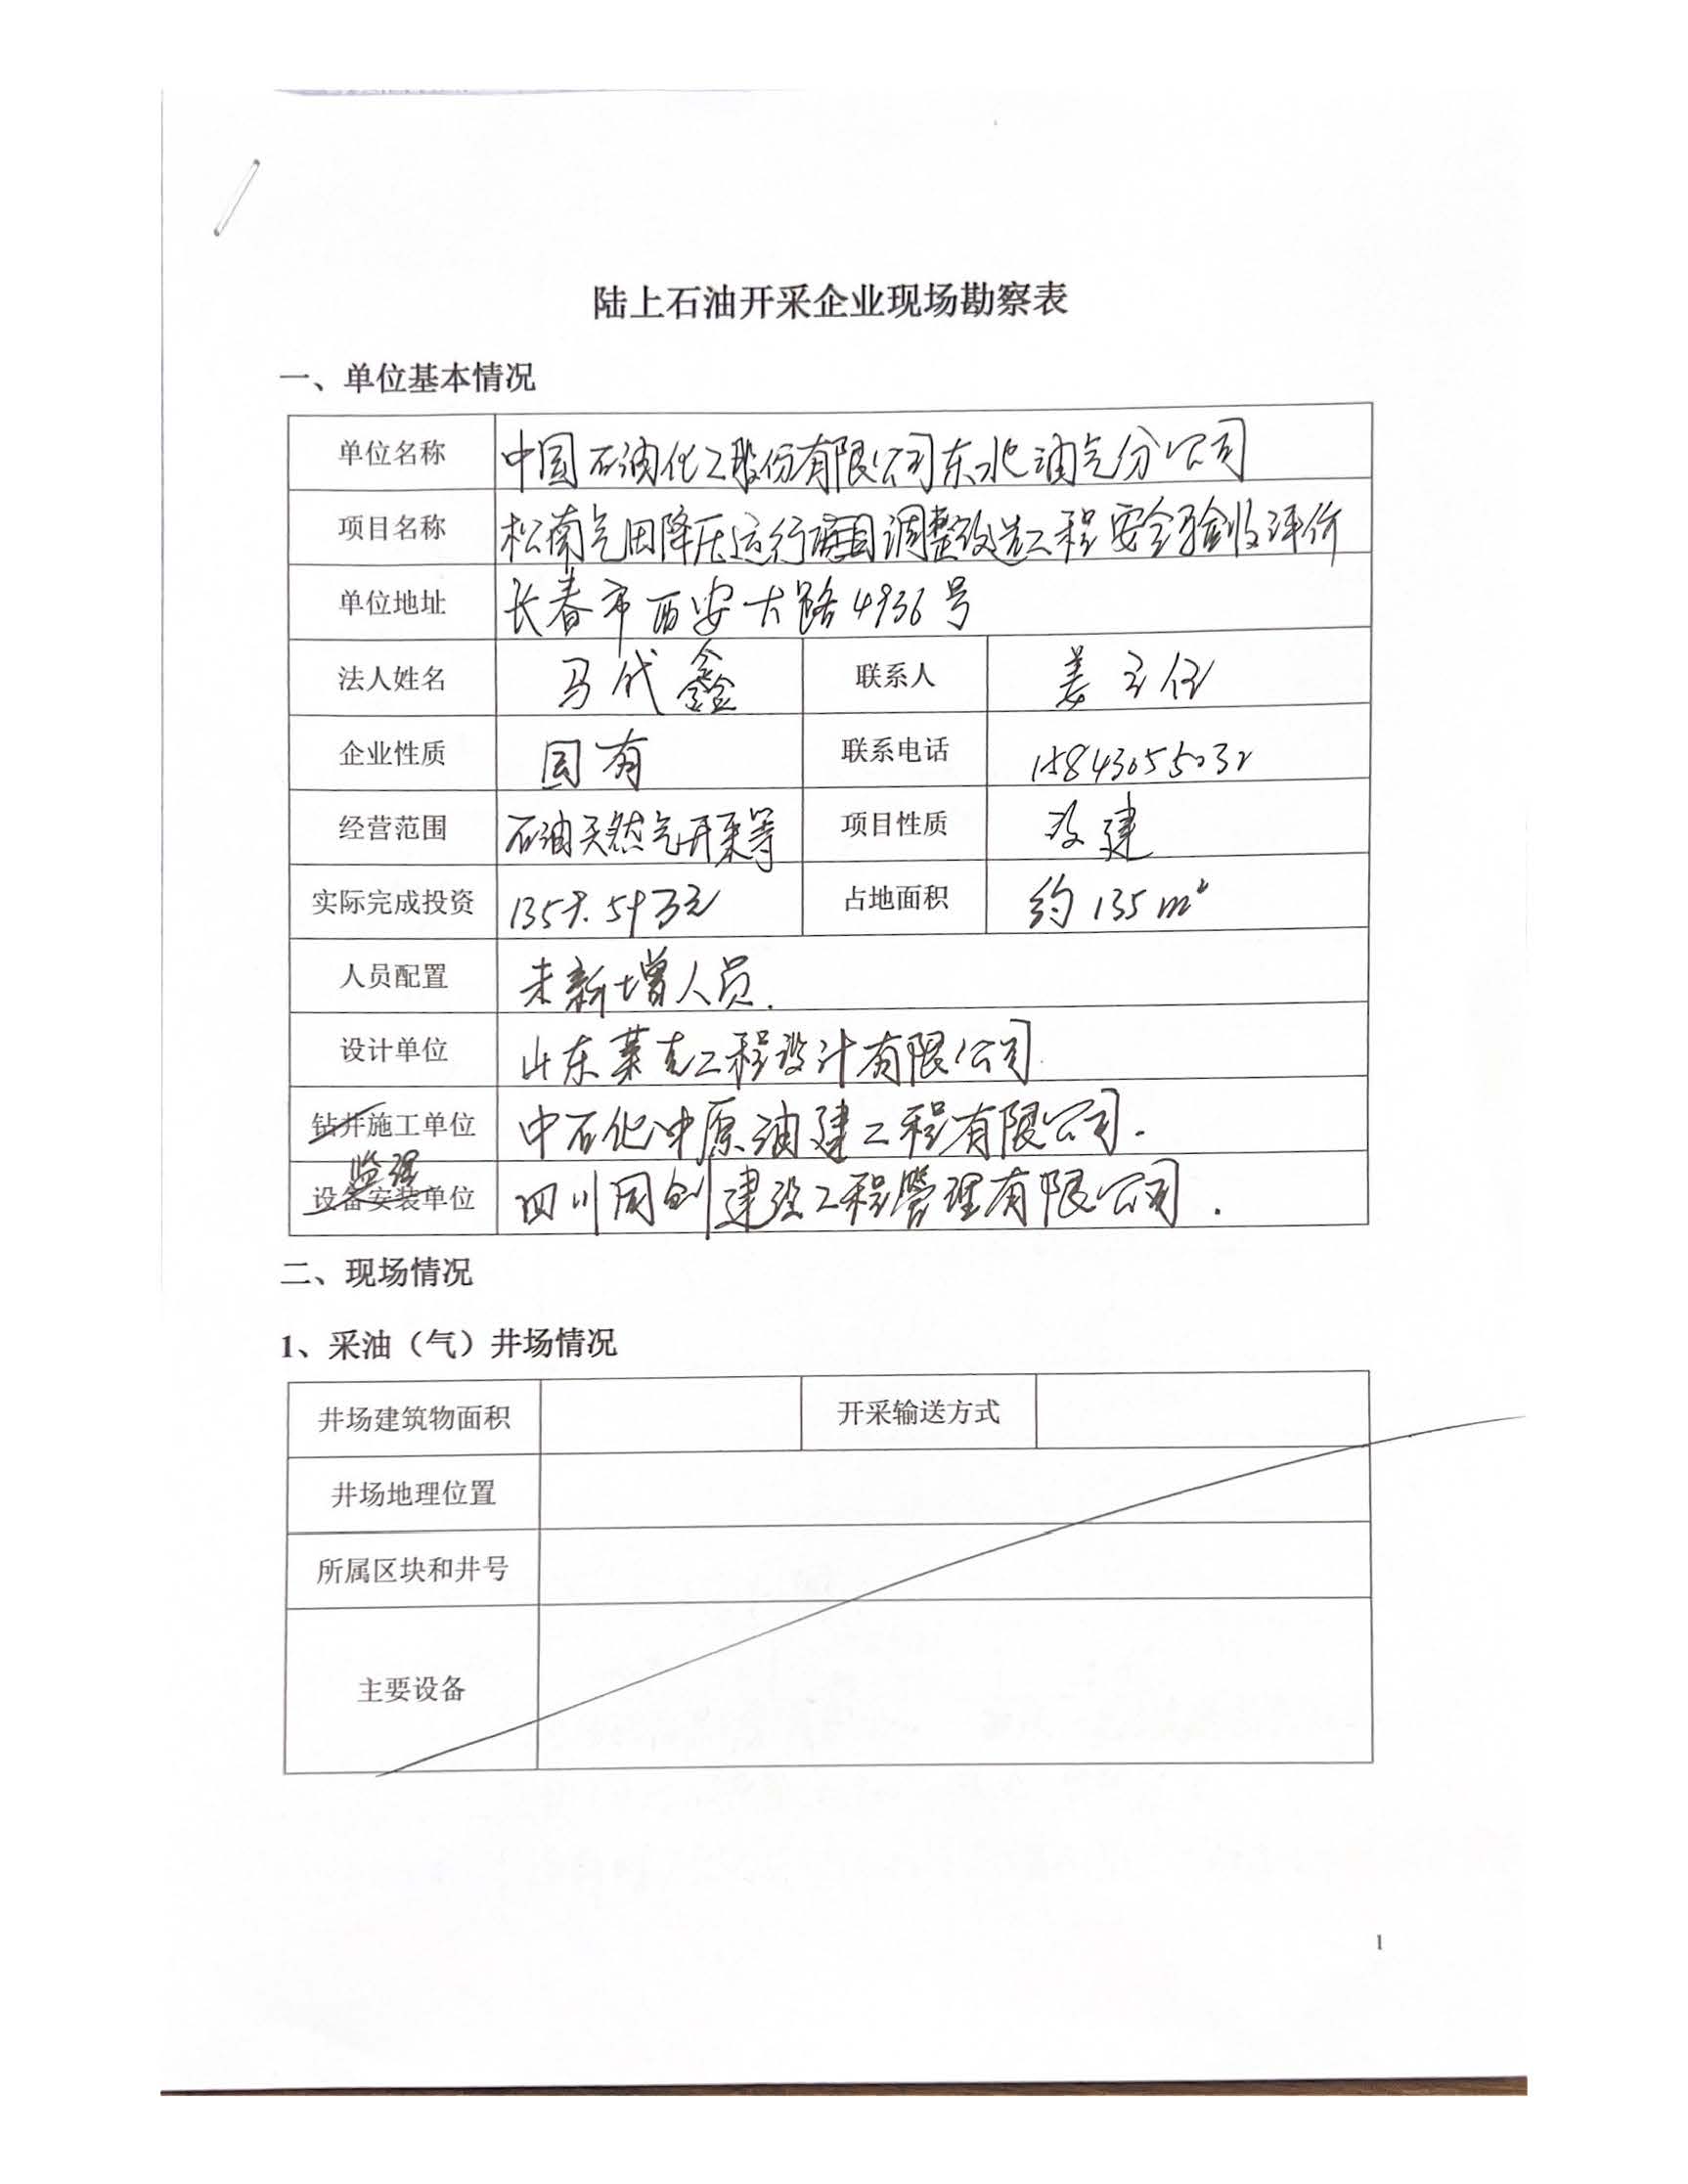 陆上石油开采企业现场勘察表
一、单位基本情况
单位名称 中国石油化工股份有限公司东北油气分公司
项目名称 松南气田降压运行项目调整改造工程安全验收评价
单位地址 长春市西安大路4936号
法人姓名 马代鑫 联系人 姜主任
企业性质 国有 联系电话 15843055032
经营范围 石油天然气开采等 项目性质 改建
实际完成投资 万元 占地面积 约135m²
人员配置 未新增人员.
设计单位 山东莱克工程设计有限公司.
钻井施工单位 中石化中原油建工程有限公司.
监理
设备安装单位 四川同创建设工程管理有限公司.
二、现场情况
1、采油（气）井场情况
井场建筑物面积 开采输送方式
井场地理位置
所属区块和井号
主要设备
1